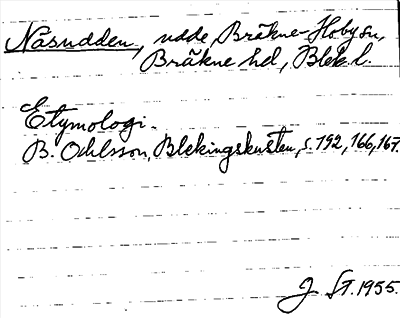 Näsudden, udde Bräkne-Hoby sn,
Bräkne hd, Blek. l.
Etymologi.
B. Ohlsson, Blekingskusten, s. 192, 166, 167.
J. St. 1955.